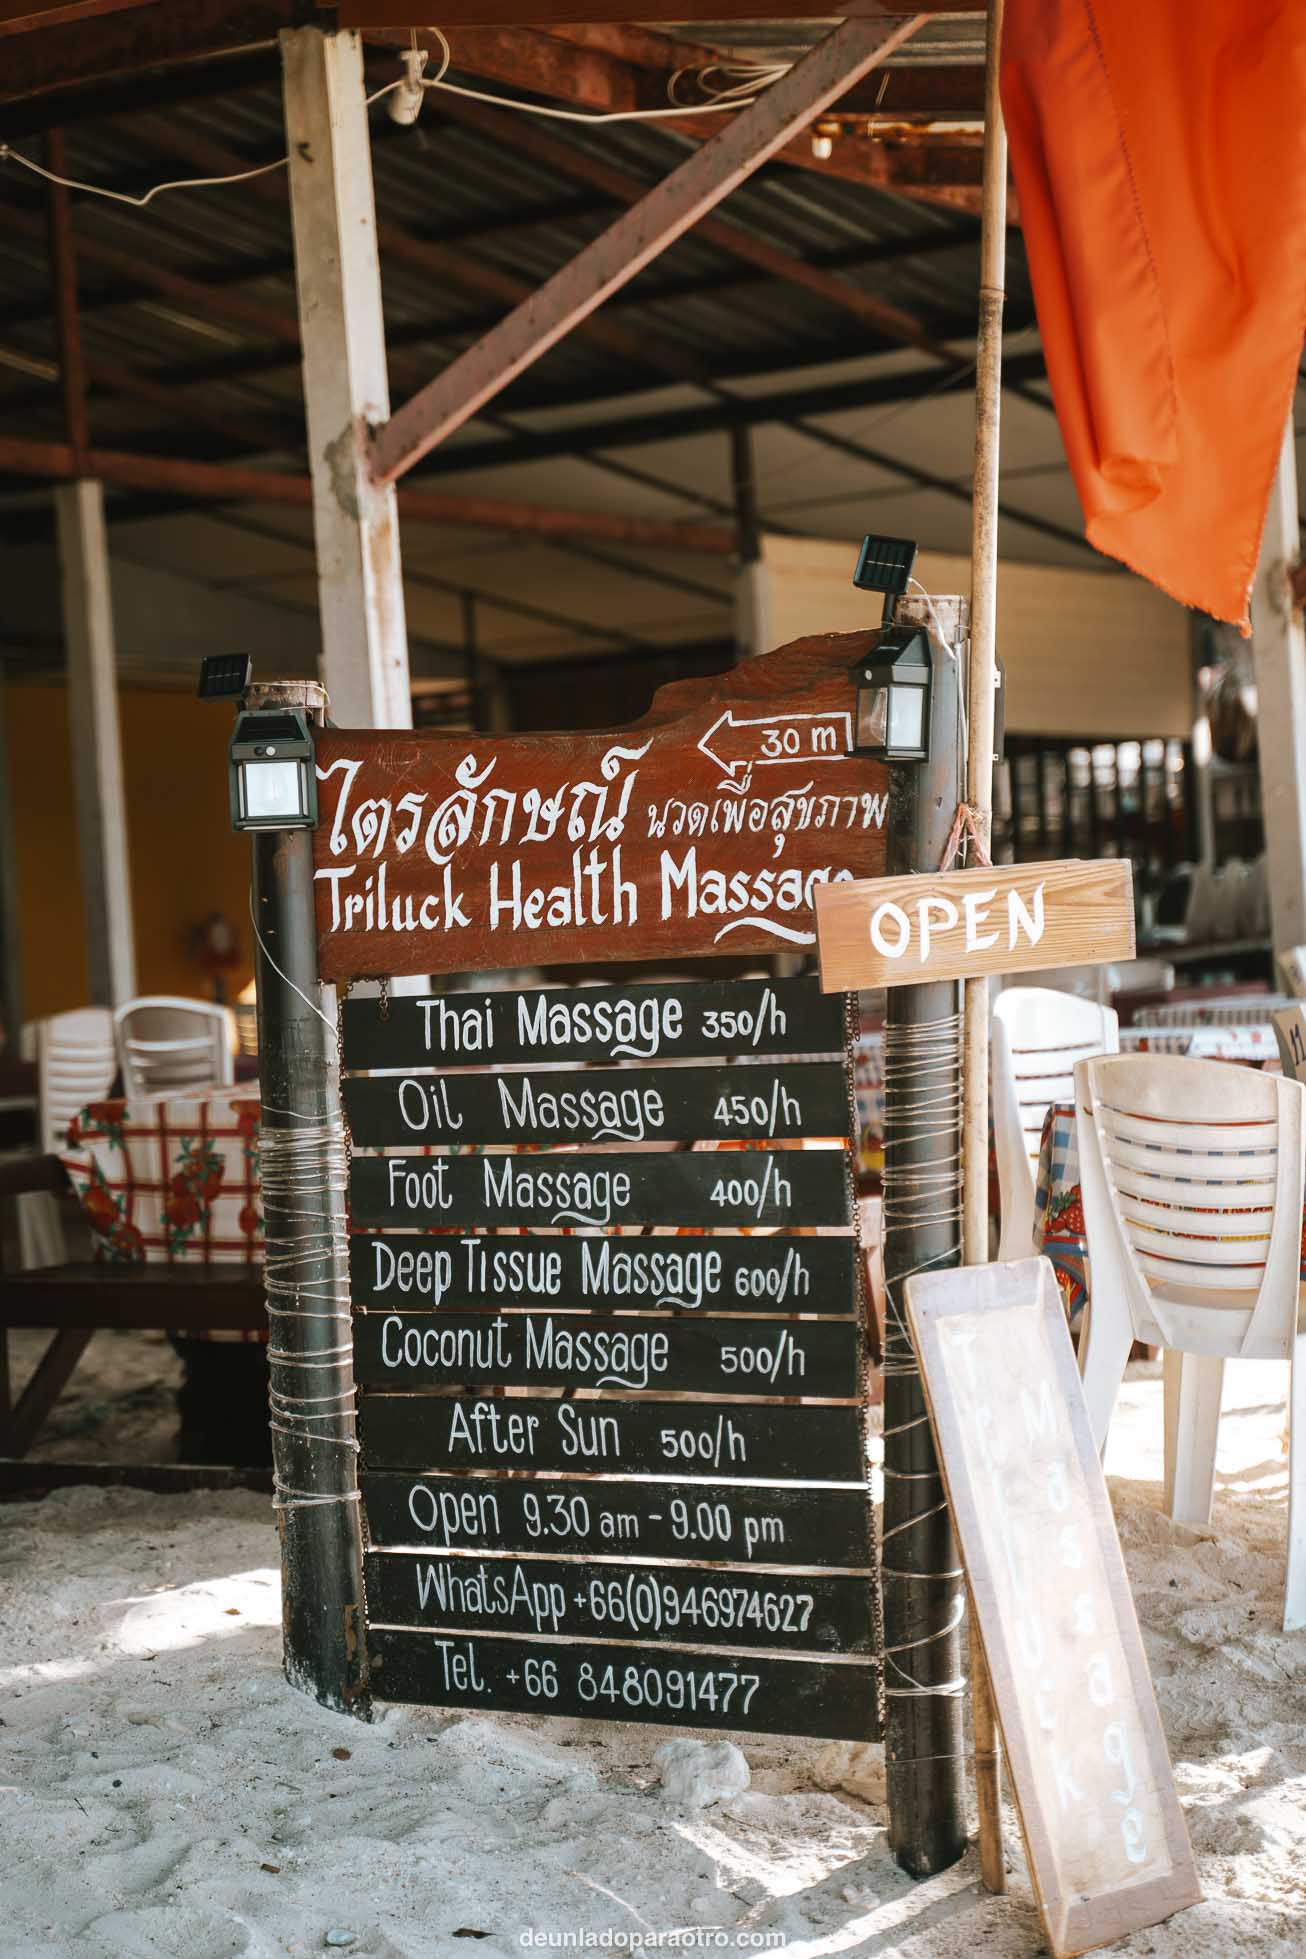 30 m
ไตรลักษณ์ นวดเพื่อสุขภาพ
Triluck Health Massage
OPEN
Thai Massage 350/h
Oil Massage 450/h
Foot Massage 400/h
Deep Tissue Massage 600/h
Coconut Massage 500/h
After Sun 500/h
Open 9.30 am - 9.00 pm
WhatsApp +66(0)946974627
Tel. +66 848091477
Triluck
Massage
deunladoparaotro.com